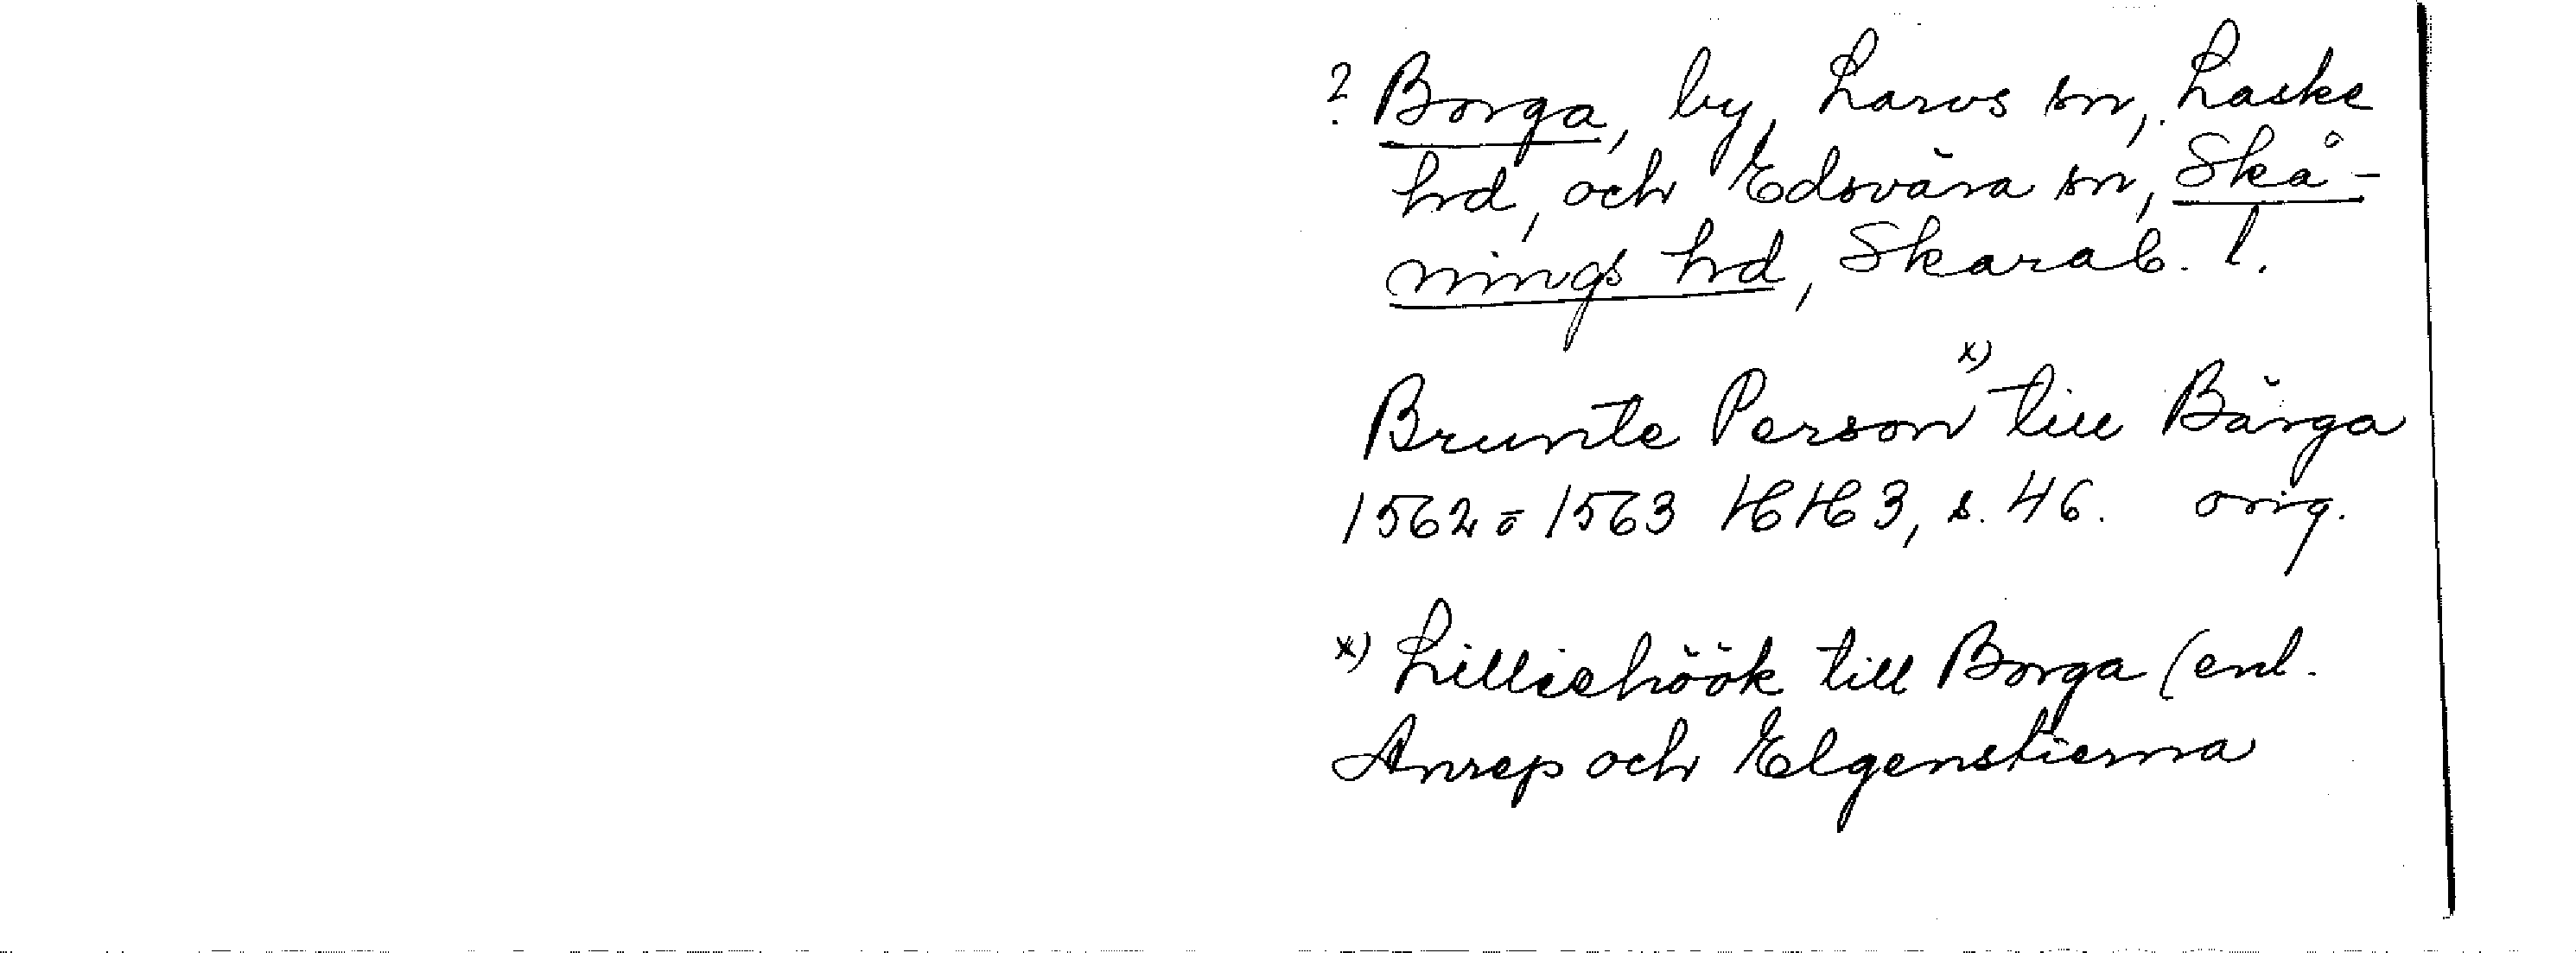 ? Borga, by, Larvs sn, Laske
hd, och Edsvära sn, Skå-
nings hd, Skarab. l.
Brunte Person x) till Bärga
1562 o 1563 HH 3, s. 46. orig.
x) Lilliehöök till Borga (enl.
Anrep och Elgenstierna